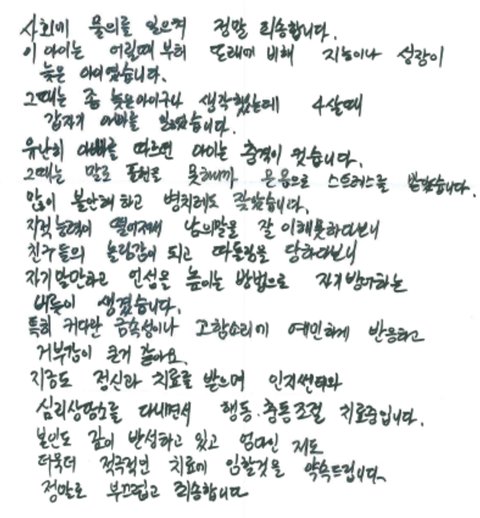 사회에 물의를 일으켜 정말 죄송합니다.
이 아이는 어릴때 부터 또래에 비해 지능이나 성장이
늦은 아이였습니다.
그때는 좀 늦은아이구나 생각했는데 4살때
갑자기 아빠를 잃었습니다.
유난히 아빠를 따르던 아이는 충격이 컸습니다.
그때는 말로 표현을 못하니까 온몸으로 스트레스를 받았습니다.
많이 불안해 하고 병치레도 잦았습니다.
지적능력이 떨어져서 남의말을 잘 이해못하다보니
친구들의 놀림감이 되고 따돌림을 당하다보니
자기말만하고 언성을 높이는 방법으로 자기방어하는
버릇이 생겼습니다.
특히 커다란 금속성이나 고함소리에 예민하게 반응하고
거부감이 큰거 같아요.
지금도 정신과 치료를 받으며 인지센터와
심리상담소를 다니면서 행동·충동조절 치료중입니다.
본인도 깊이 반성하고 있고 엄마인 저도
더욱더 적극적인 치료에 임할것을 약속드립니다.
정말로 부끄럽고 죄송합니다